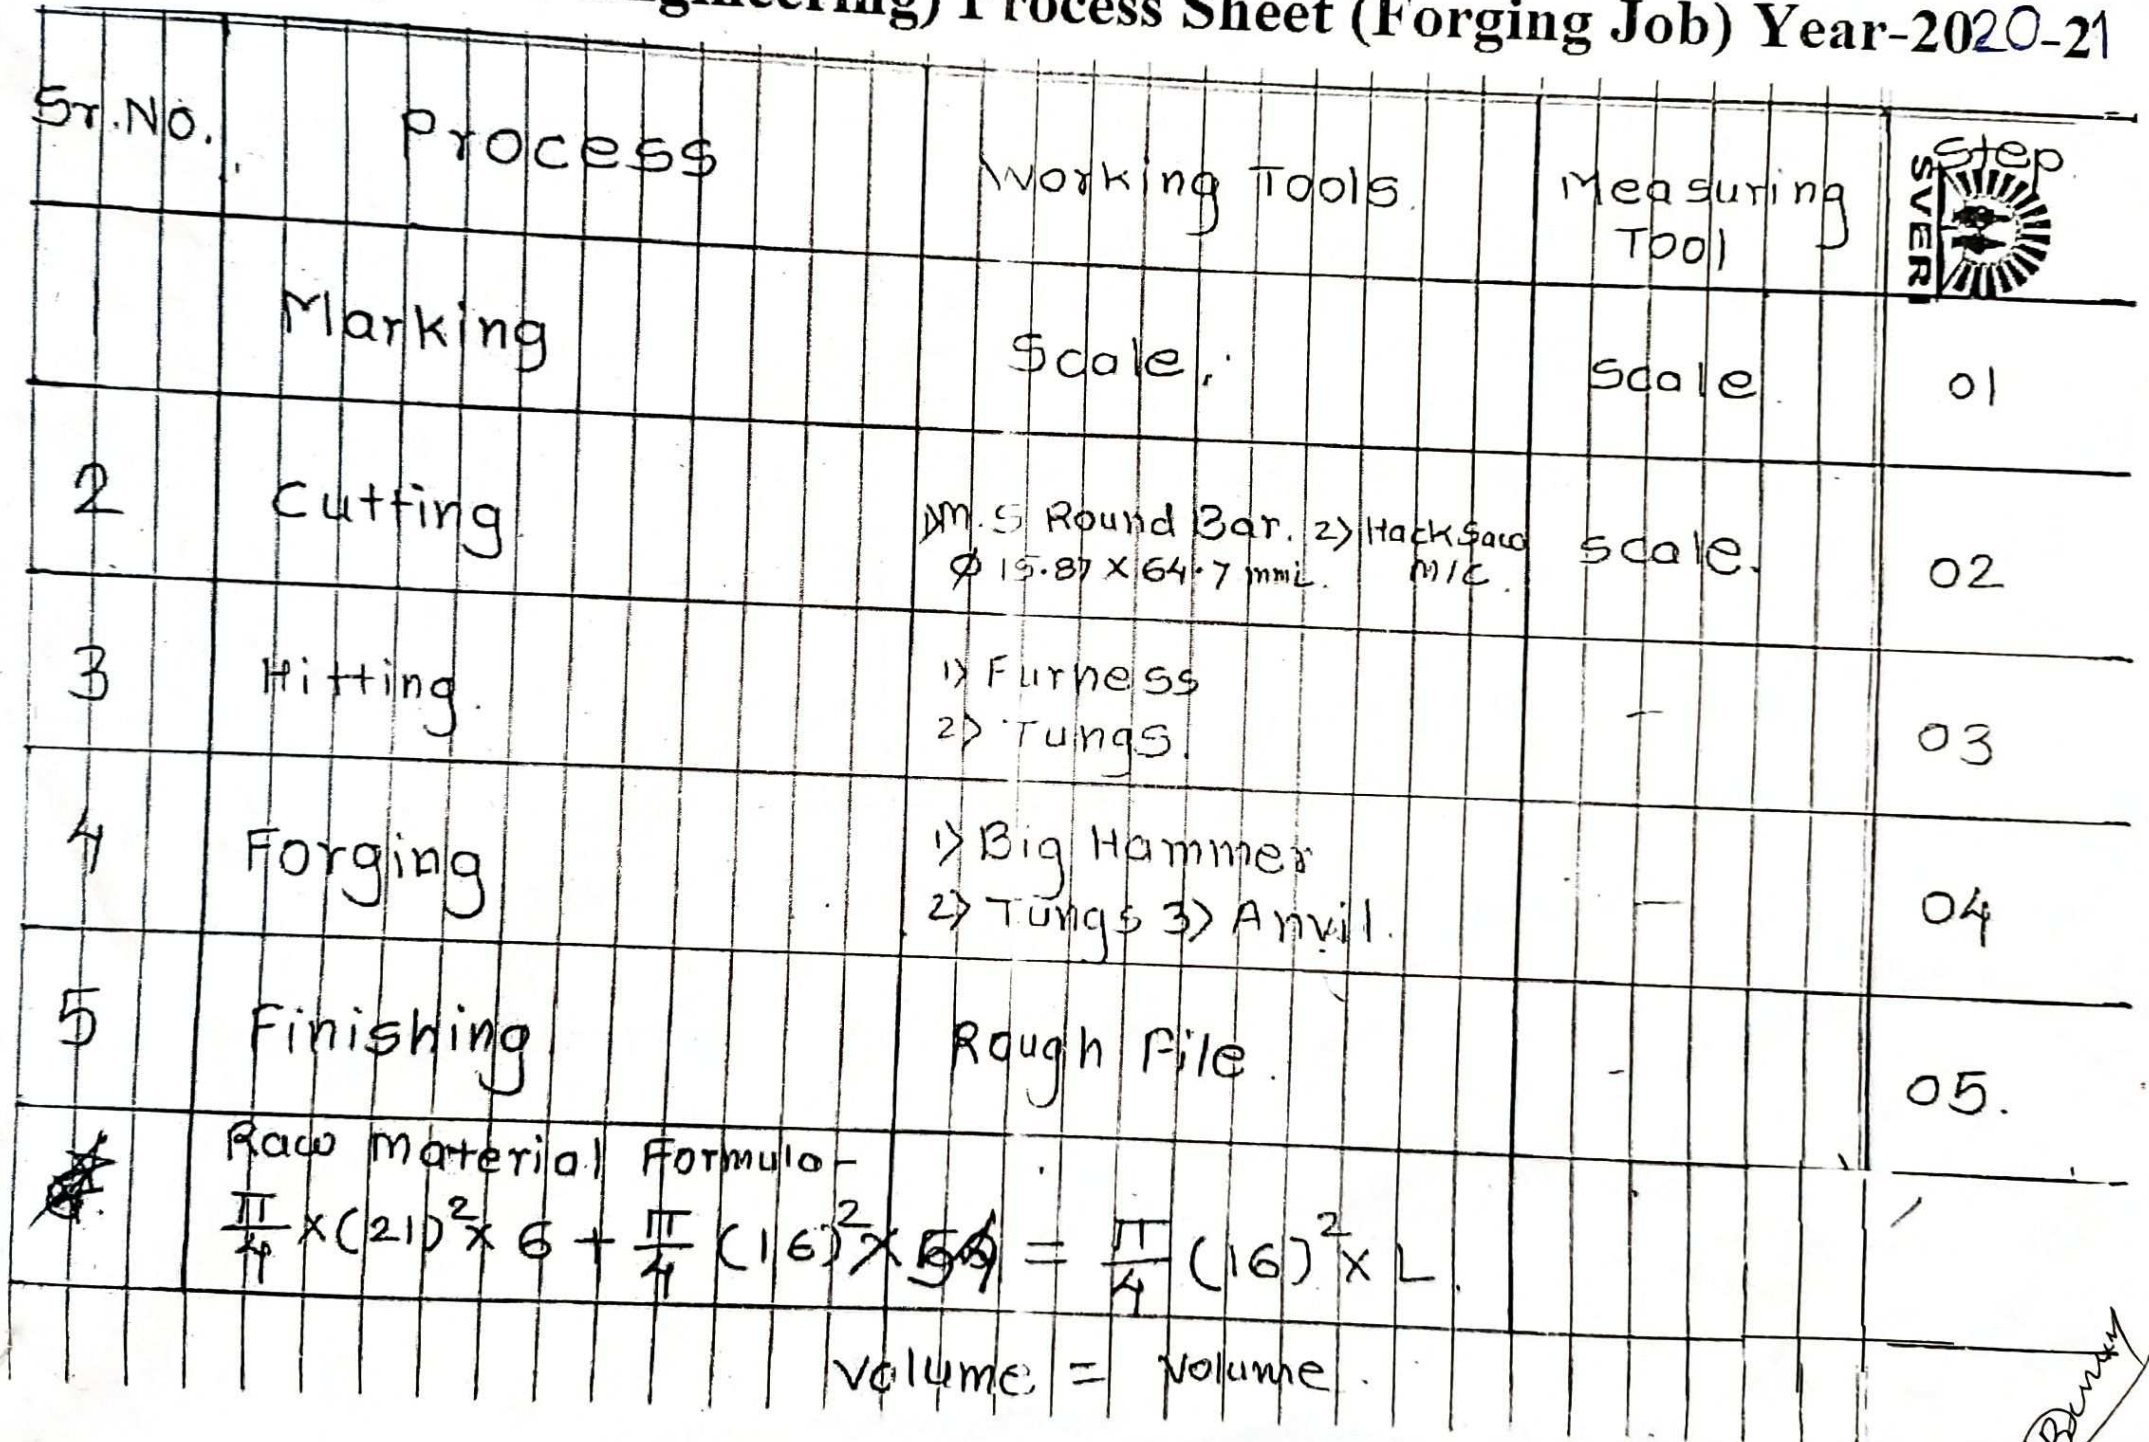 gineering) Process Sheet (Forging Job) Year-2020-21
Sr.No. Process Working Tools. Measuring Tool Step
SVERI
Marking Scale. Scale 01
2 Cutting 1) M.S Round Bar. 2) Hack Saw M/C. scale. 02
ϕ 15.87 X 64.7 mm
3 Hitting. 1) Furness - 03
2) Tungs.
4 Forging 1) Big Hammer - 04
2) Tungs 3) Anvil.
5 Finishing Rough File. - 05.
Raw Material Formula -
π/4 x (21)² x 6 + π/4 (16)² x = π/4 (16)² x L.
Volume = Volume.